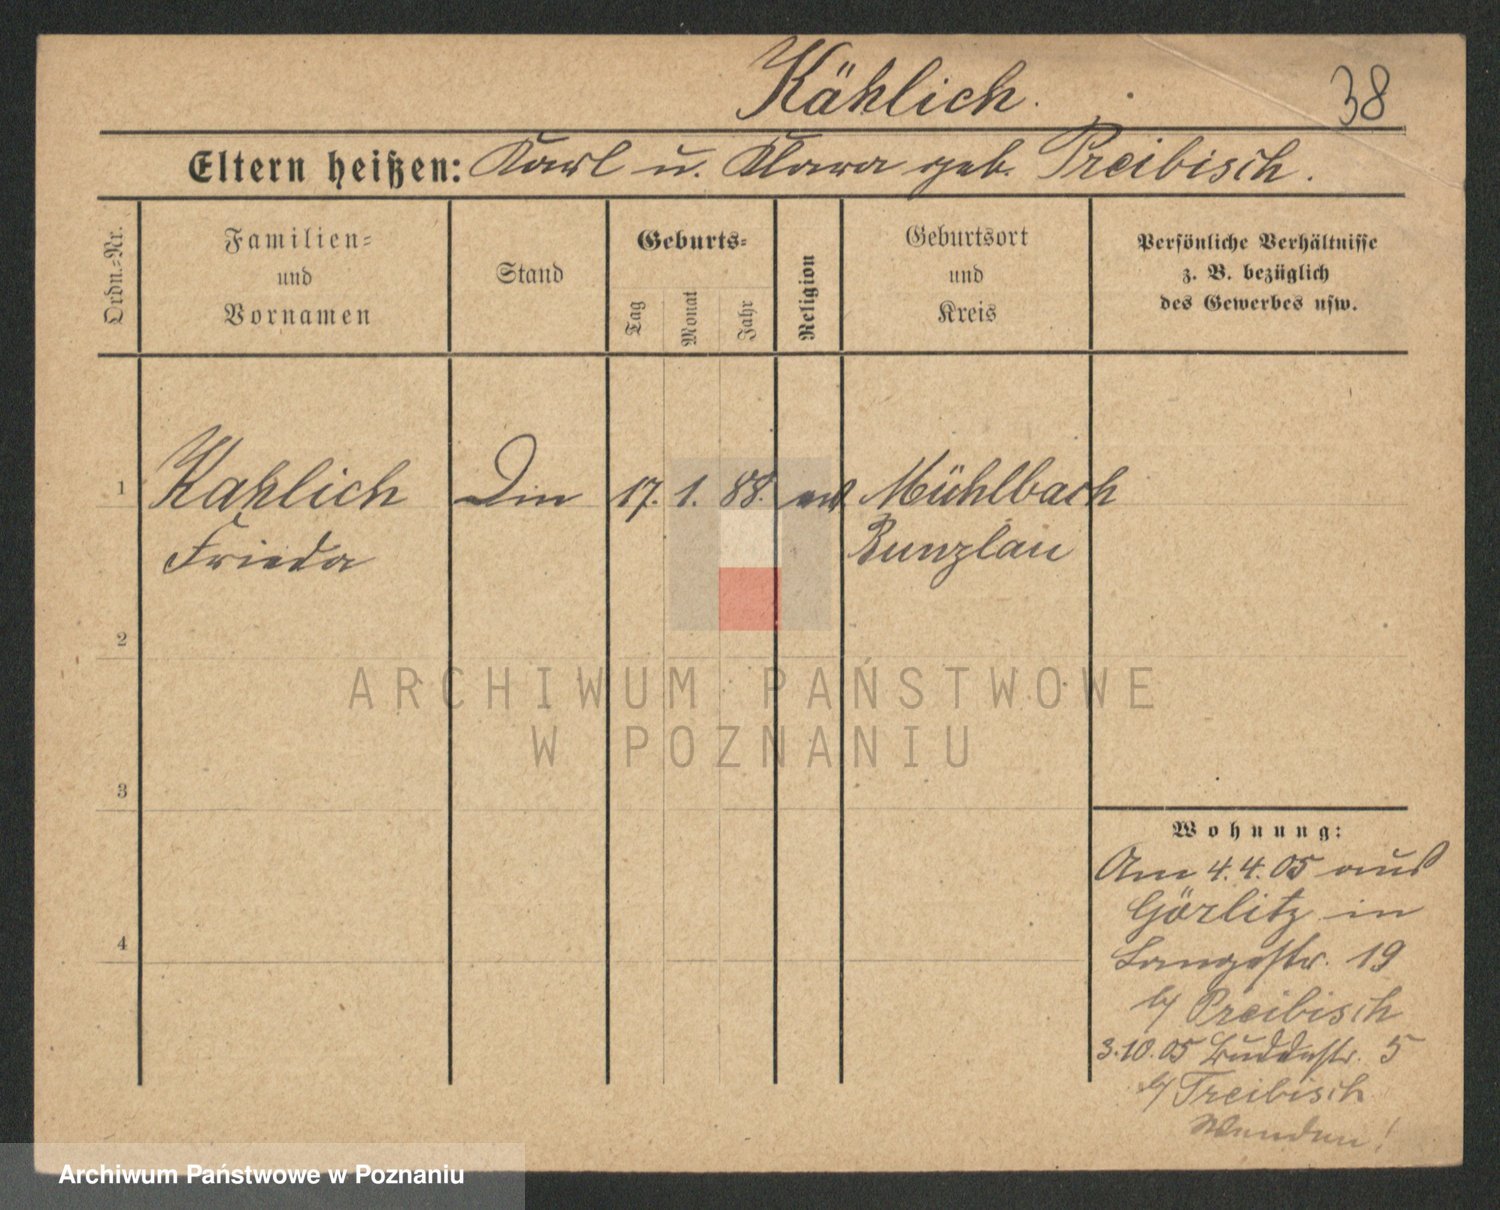 Kählich.
38
Eltern heißen: Karl u. Klara geb. Preibisch.
Ordn.-Nr.
Familien-
und
Vornamen
Stand
Geburts-
Tag
Monat
Jahr
Religion
Geburtsort
und
Kreis
Persönliche Verhältnisse
z. B. bezüglich
des Gewerbes usw.
1
Kahlich
Frieda
17. 1. 88.
Mühlbach
Bunzlau
2
3
4
ARCHIWUM PAŃSTWOWE
W POZNANIU
Wohnung:
Am 4.4.05 aus
Görlitz in
Langestr. 19
b/ Preibisch
3.10.05 Buddestr. 5
b/ Treibisch
Wenden!
Archiwum Państwowe w Poznaniu